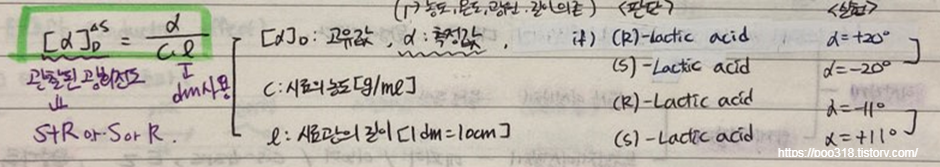 (↱ 농도, 온도, 광원, 길이 의존) <판단> <실험>
[α]D25 = α / c·l
[α]D : 고유값, α : 측정값, if) (R)-Lactic acid α=+20°
관찰된 광회전도 dm사용 (S)-Lactic acid α=-20°
C : 시료의 농도 [g/ml]
(R)-Lactic acid α=-11°
S+R or S or R.
l : 시료관의 길이 [1dm=10cm] (S)-Lactic acid α=+11°
https://poo318.tistory.com/